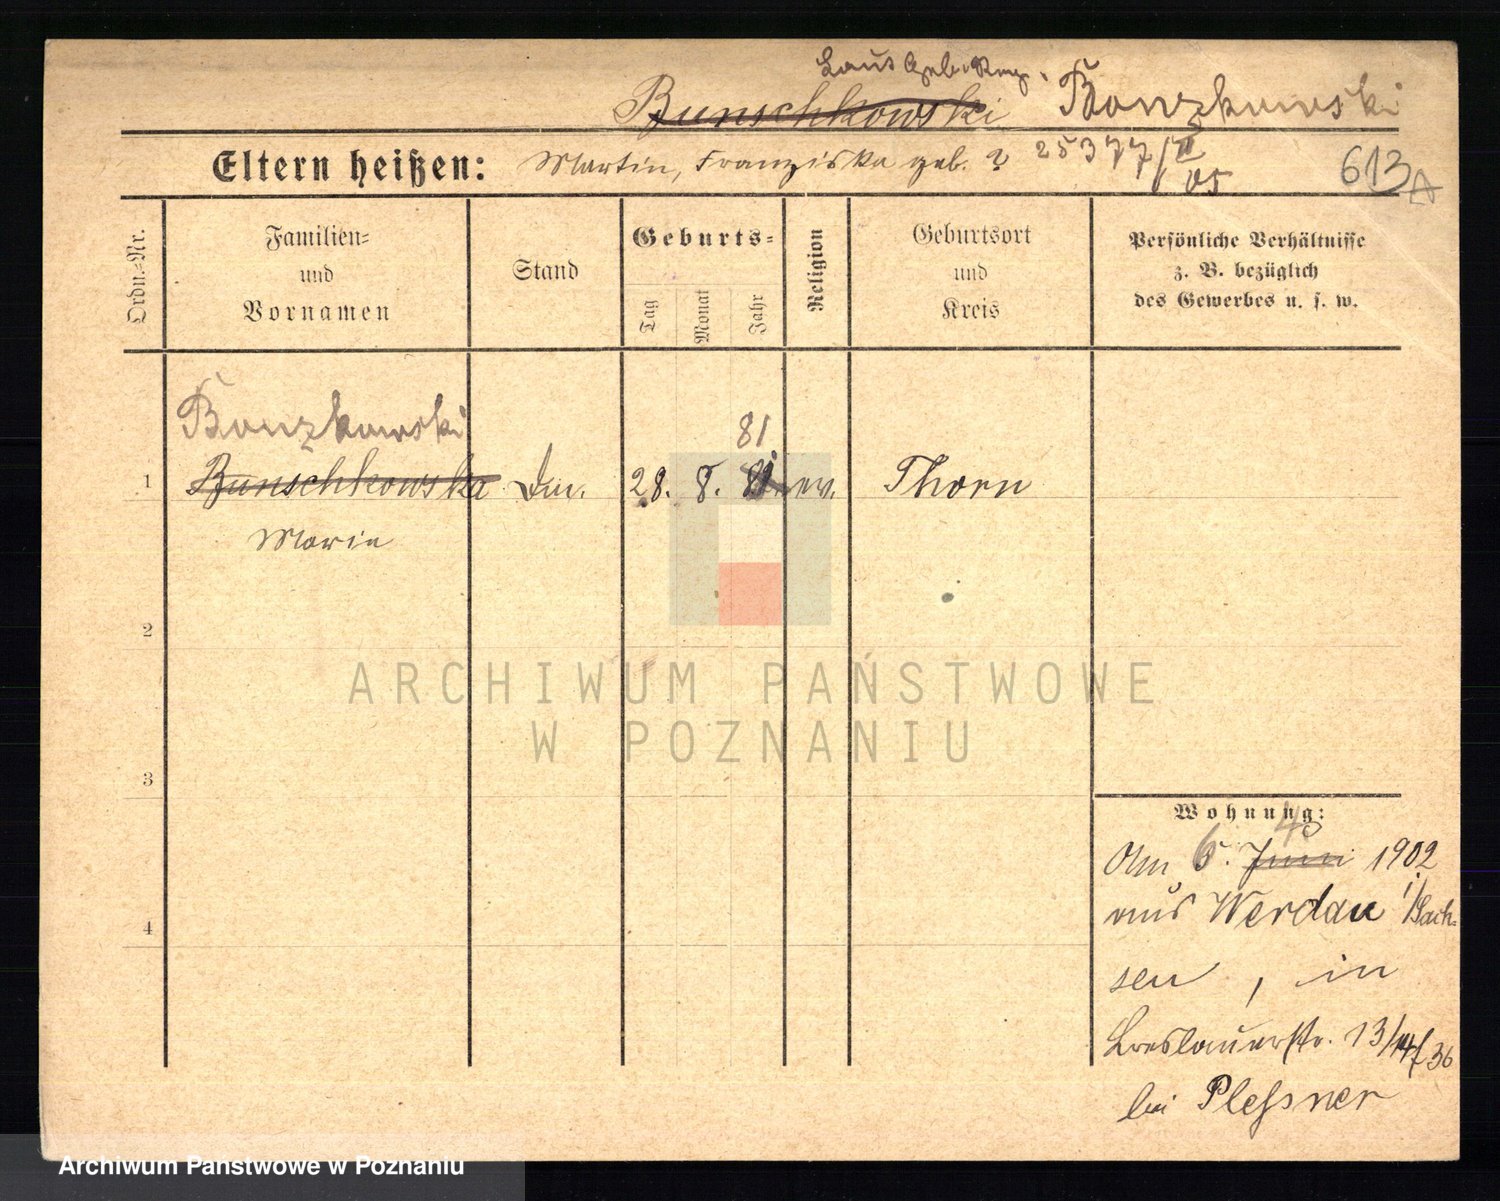 Laut Geb. Reg.
Bunschkowski Bonzkowski
Eltern heißen: Martin, Franziska geb. ? 25377/II 05
613 A
Ordn.-Nr.
Familien-
und
Vornamen
Stand
Geburts-
Tag
Monat
Jahr
Religion
Geburtsort
und
Kreis
Persönliche Verhältnisse
z. B. bezüglich
des Gewerbes u. s. w.
Bonzkowski
81
1 Bunschkowska 28. 8. 81 ev. Thorn
Marie
2
3
4
Wohnung:
Am 6. Juni 1902
aus Werdau i/Sach-
sen, in
Breslauerstr. 13/14 36
bei Pleßner
ARCHIWUM PAŃSTWOWE
W POZNANIU
Archiwum Państwowe w Poznaniu